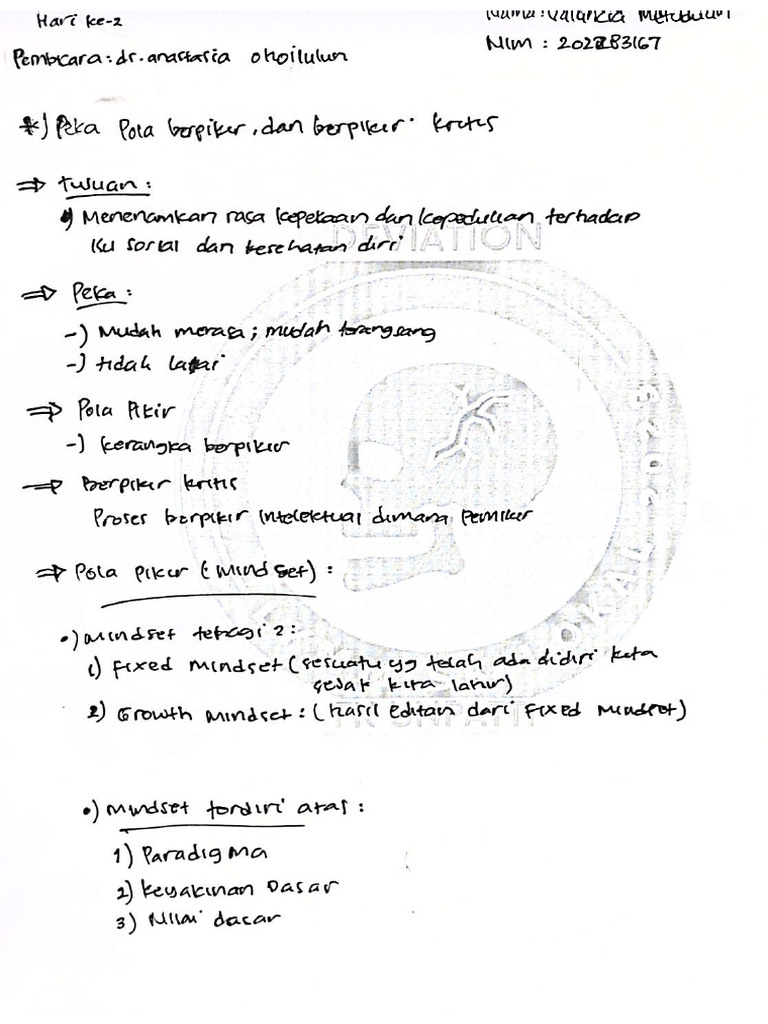 Hari ke-2
Nama : Valancia
NIM : 202283167
Pembicara : dr. anastasia ohoilulun
*) Peka Pola berpikir, dan berpikir kritis
⇒ Tujuan :
•) Menenamkan rasa kepekaan dan kepedulian terhadap
isu sosial dan kesehatan diri
DEVIATION
⇒ Peka :
-) Mudah merasa ; mudah terangsang
-) tidak lalai
⇒ Pola Pikir
-) kerangka berpikir
⇒ Berpikir kritis
Proses berpikir intelektual dimana pemikir
⇒ Pola pikir (mindset) :
•) mindset terbagi 2 :
1) Fixed mindset (sesuatu yg telah ada didiri kita
sejak kita lahir)
2) Growth mindset : (hasil editan dari Fixed mindset)
FK UNPATTI
•) mindset terdiri atas :
1) Paradigma
2) Keyakinan Dasar
3) Nilai dasar